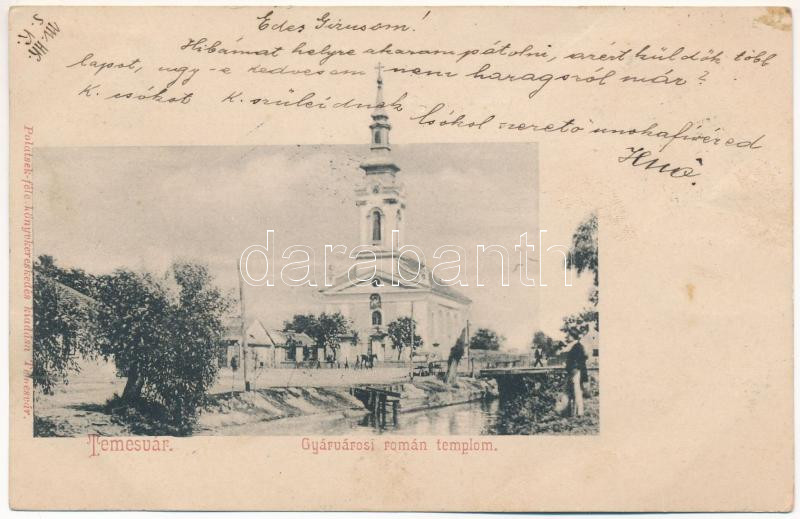 Edes Girusom!
Hibámat helyre akarom pótolni, azért küldök több
lapot, ugy-e kedvesem nem haragszol már?
K. csókot K. szüleidnek
Csókol szerető unokafivéred
Polatsek-féle könyvkereskedés kiadása Temesvár.
darabanth
Temesvár.
Gyárvárosi román templom.